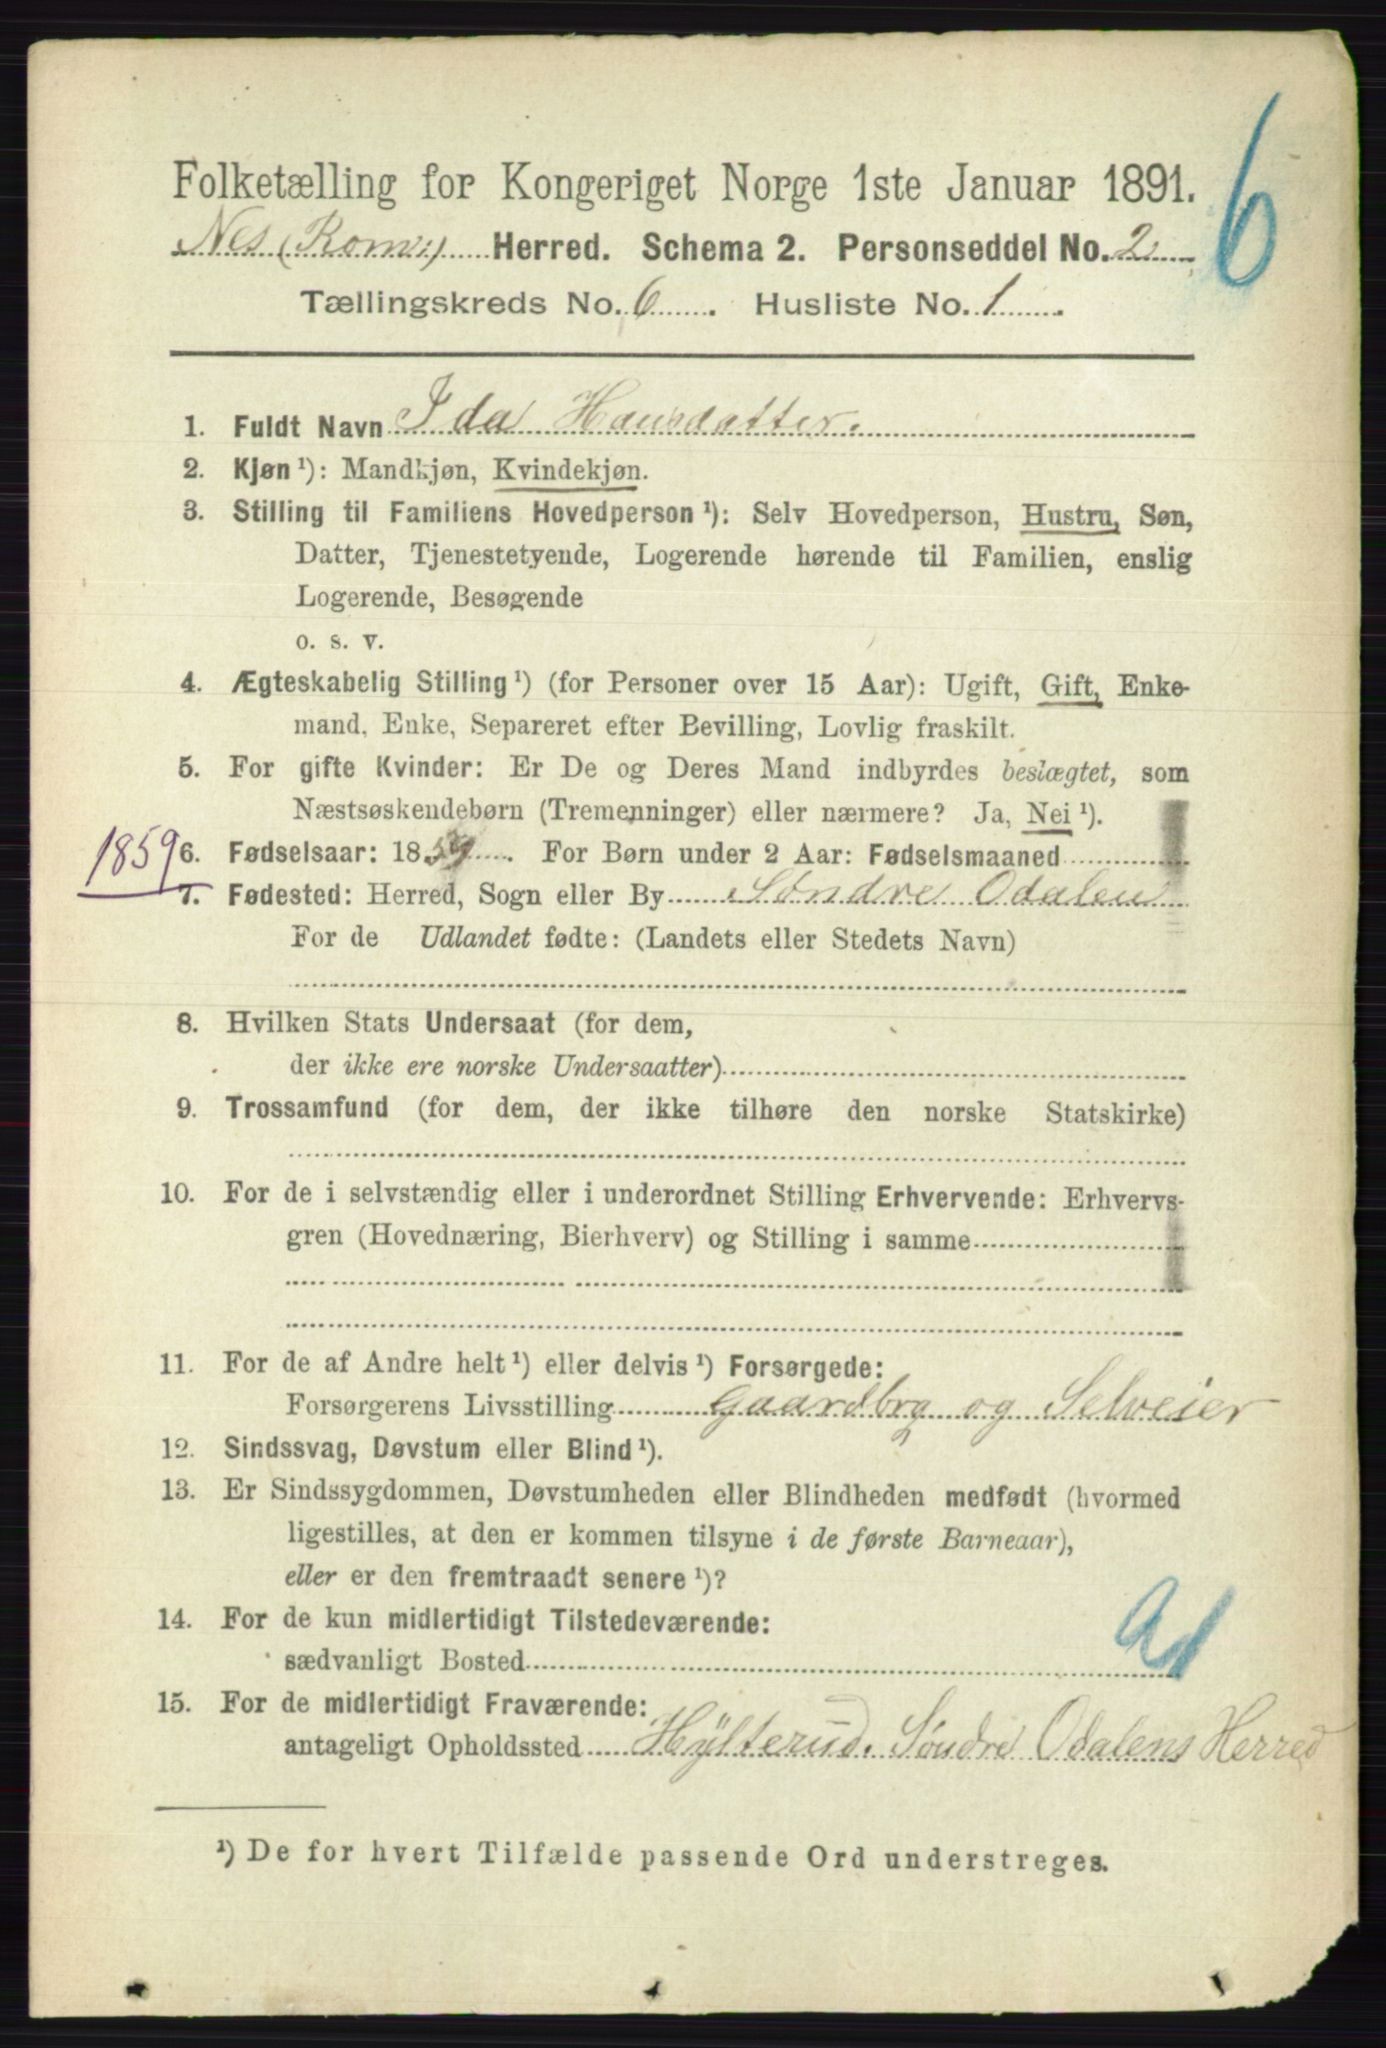 6
Folketælling for Kongeriget Norge 1ste Januar 1891.
Nes (Rom:) Herred. Schema 2. Personseddel No. 2
Tællingskreds No. 6 . Husliste No. 1 .
1. Fuldt Navn Ida Hansdatter.
2. Kjøn ¹): Mandkjøn, Kvindekjøn.
3. Stilling til Familiens Hovedperson ¹): Selv Hovedperson, Hustru, Søn,
Datter, Tjenestetyende, Logerende hørende til Familien, enslig
Logerende, Besøgende
o. s. v.
4. Ægteskabelig Stilling ¹) (for Personer over 15 Aar): Ugift, Gift, Enke-
mand, Enke, Separeret efter Bevilling, Lovlig fraskilt.
5. For gifte Kvinder: Er De og Deres Mand indbyrdes beslægtet, som
Næstsøskendebørn (Tremenninger) eller nærmere? Ja, Nei ¹).
1859 6. Fødselsaar: 1859 . For Børn under 2 Aar: Fødselsmaaned
7. Fødested: Herred, Sogn eller By Søndre Odalen
For de Udlandet fødte: (Landets eller Stedets Navn)
8. Hvilken Stats Undersaat (for dem,
der ikke ere norske Undersaatter)
9. Trossamfund (for dem, der ikke tilhøre den norske Statskirke)
10. For de i selvstændig eller i underordnet Stilling Erhvervende: Erhvervs-
gren (Hovednæring, Bierhverv) og Stilling i samme
11. For de af Andre helt ¹) eller delvis ¹) Forsørgede:
Forsørgerens Livsstilling Gaardbrg og Selveier
12. Sindssvag, Døvstum eller Blind ¹).
13. Er Sindssygdommen, Døvstumheden eller Blindheden medfødt (hvormed
ligestilles, at den er kommen tilsyne i de første Barneaar),
eller er den fremtraadt senere ¹)?
14. For de kun midlertidigt Tilstedeværende:
sædvanligt Bosted
15. For de midlertidigt Fraværende:
antageligt Opholdssted Hylterud. Søndre Odalens Herred
¹) De for hvert Tilfælde passende Ord understreges.